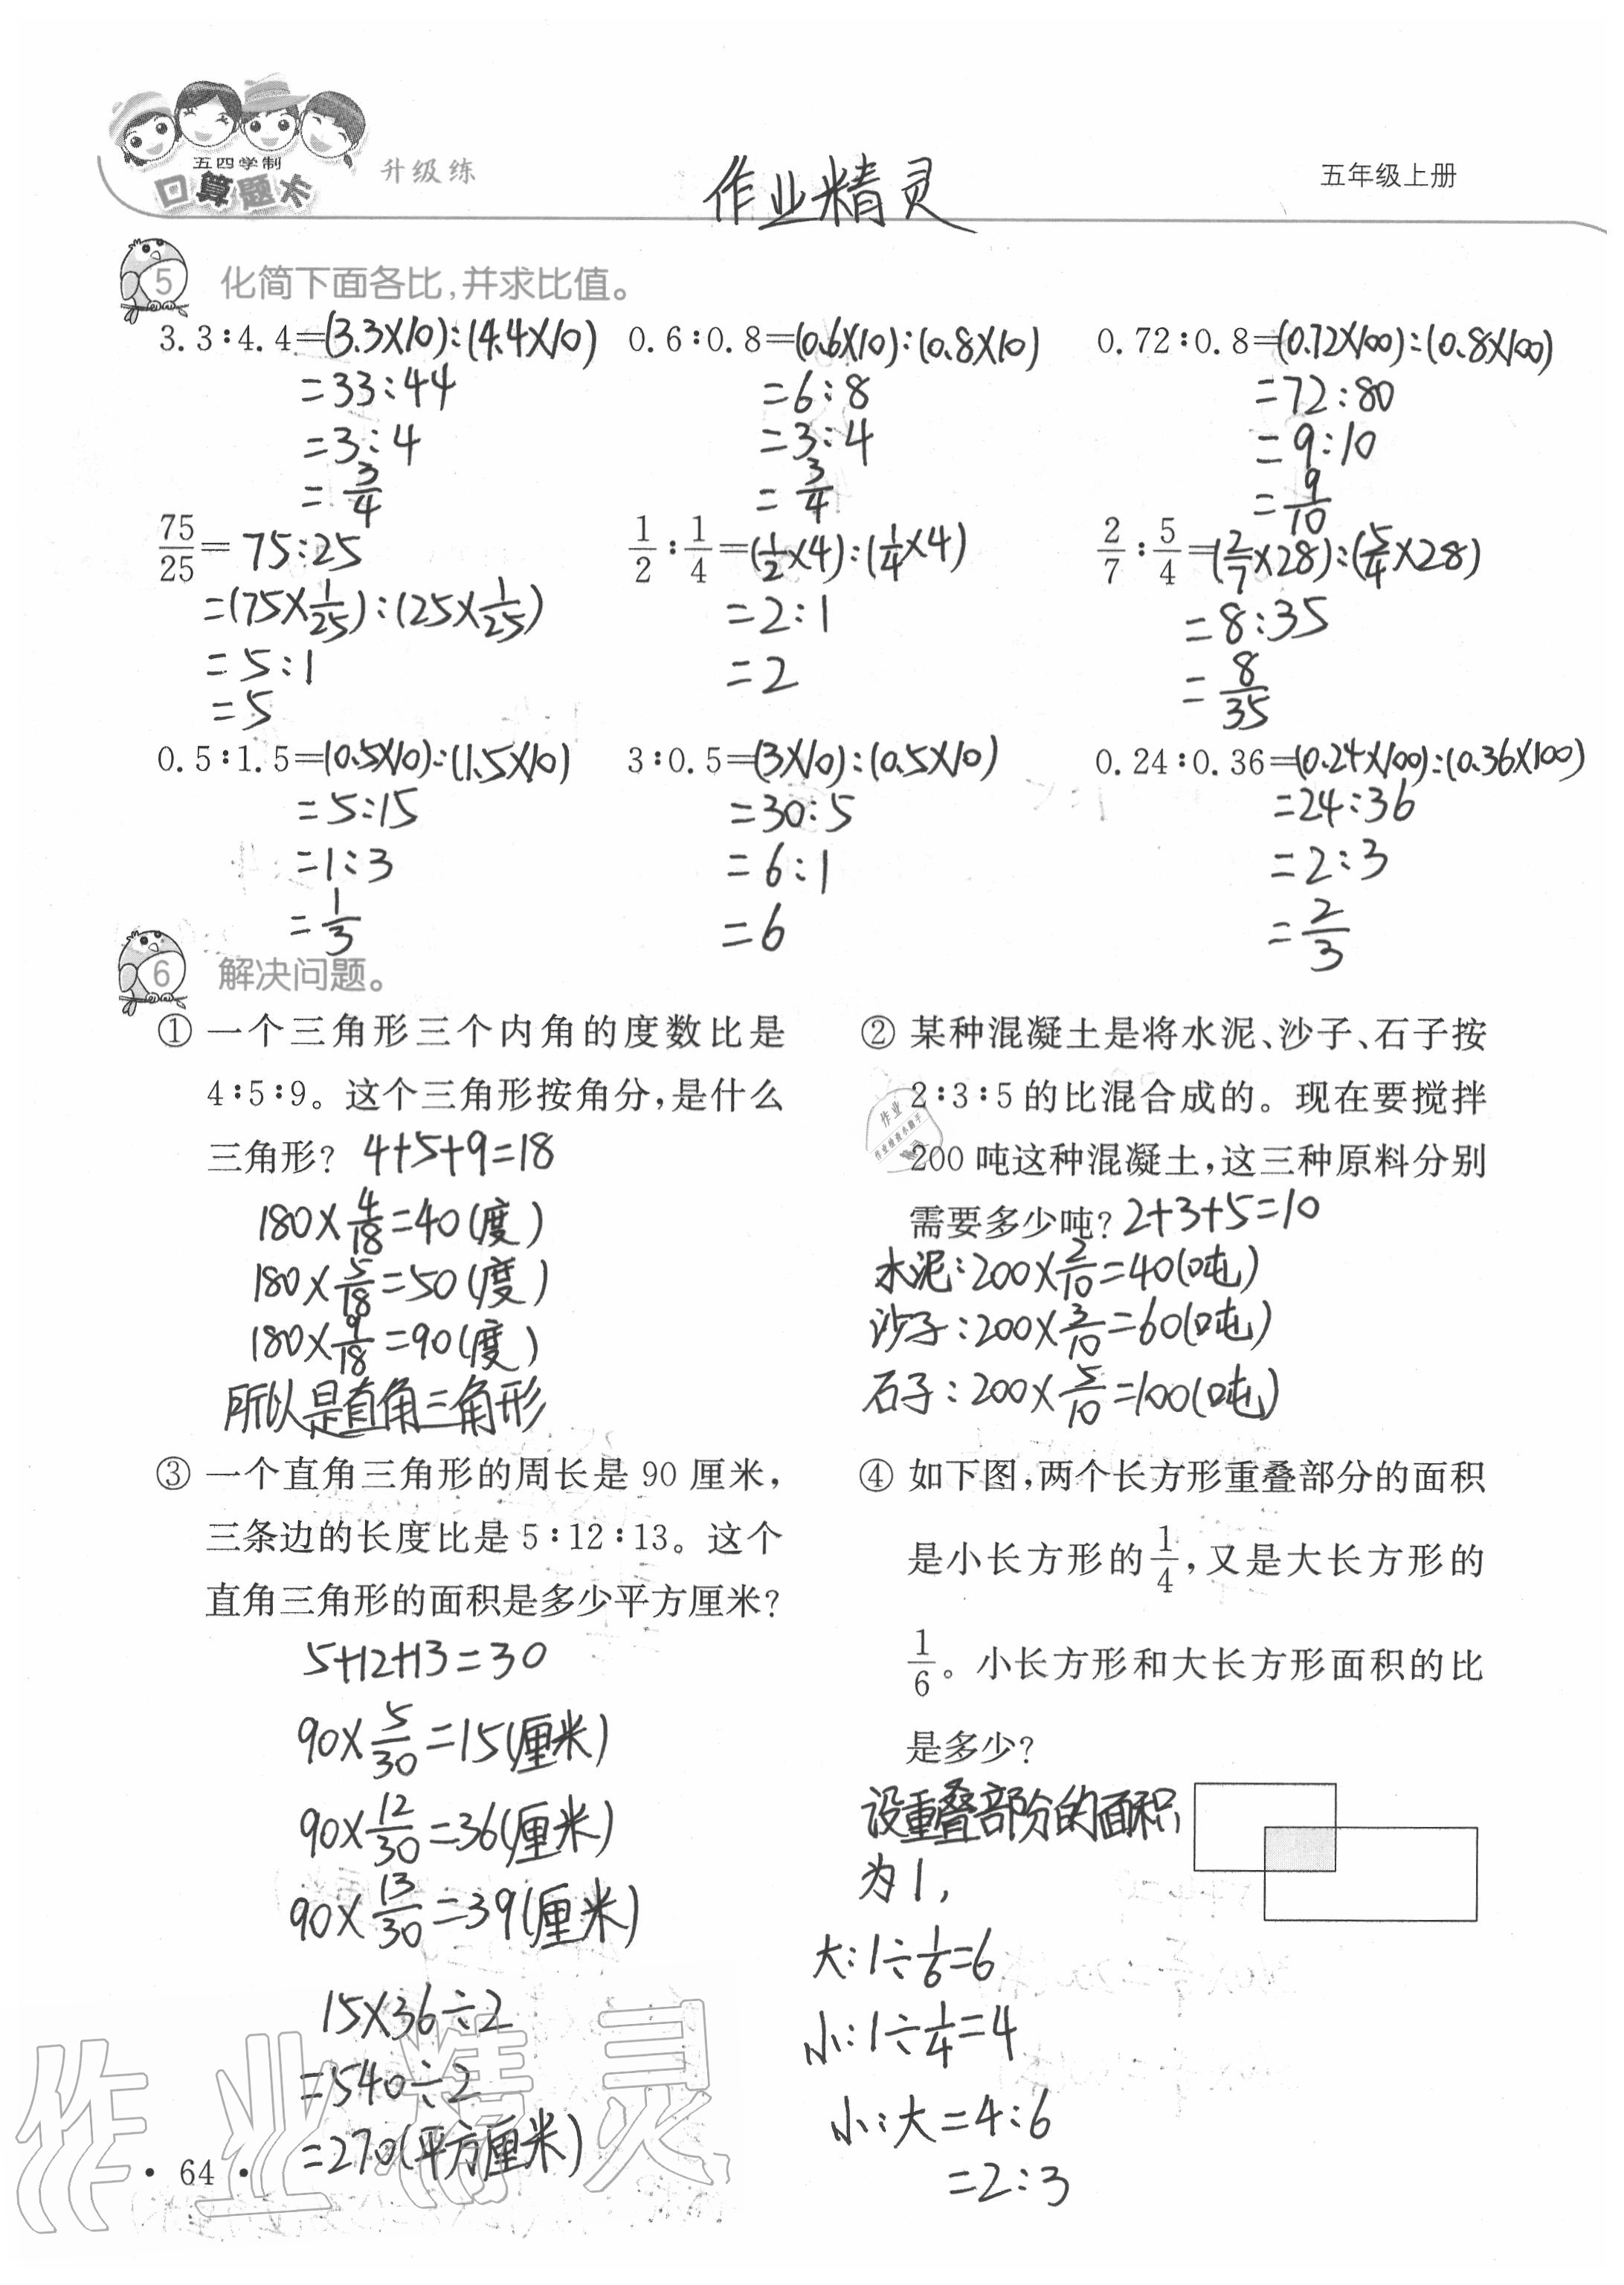 五四学制
口算题卡
升级练
作业精灵
五年级上册
5 化简下面各比,并求比值。
3.3∶4.4=(3.3×10)∶(4.4×10) 0.6∶0.8=(0.6×10)∶(0.8×10) 0.72∶0.8=(0.72×100)∶(0.8×100)
=33∶44 =6∶8 =72∶80
=3∶4 =3∶4 =9∶10
=3/4 =3/4 =9/10
75/25=75∶25 1/2∶1/4=(1/2×4)∶(1/4×4) 2/7∶5/4=(2/7×28)∶(5/4×28)
=(75×1/25)∶(25×1/25) =2∶1 =8∶35
=5∶1 =2 =8/35
=5
0.5∶1.5=(0.5×10)∶(1.5×10) 3∶0.5=(3×10)∶(0.5×10) 0.24∶0.36=(0.24×100)∶(0.36×100)
=5∶15 =30∶5 =24∶36
=1∶3 =6∶1 =2∶3
=1/3 =6 =2/3
6 解决问题。
① 一个三角形三个内角的度数比是
4∶5∶9。这个三角形按角分,是什么
三角形? 4+5+9=18
180×4/18=40(度)
180×5/18=50(度)
180×9/18=90(度)
所以是直角三角形
② 某种混凝土是将水泥、沙子、石子按
2∶3∶5的比混合成的。现在要搅拌
200吨这种混凝土,这三种原料分别
需要多少吨? 2+3+5=10
水泥:200×2/10=40(吨)
沙子:200×3/10=60(吨)
石子:200×5/10=100(吨)
③ 一个直角三角形的周长是90厘米,
三条边的长度比是5∶12∶13。这个
直角三角形的面积是多少平方厘米?
5+12+13=30
90×5/30=15(厘米)
90×12/30=36(厘米)
90×13/30=39(厘米)
15×36÷2
=540÷2
=270(平方厘米)
④ 如下图,两个长方形重叠部分的面积
是小长方形的1/4,又是大长方形的
1/6。小长方形和大长方形面积的比
是多少?
设重叠部分的面积
为1,
大:1÷1/6=6
小:1÷1/4=4
小:大=4∶6
=2∶3
作业精灵
·64·